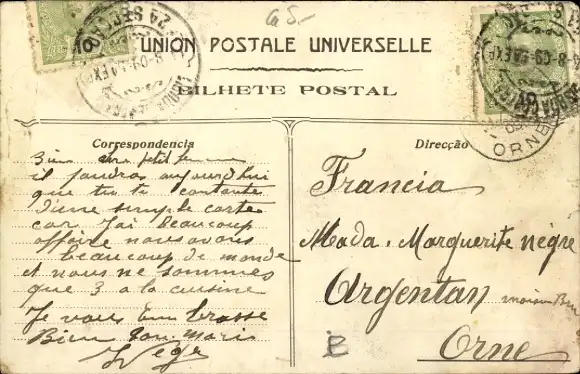 UNION POSTALE UNIVERSELLE
BILHETE POSTAL
Correspondencia
petit
il faudras aujourd'hui
que tu te contante
d'une simple carte
car J'ai beaucoup
affaire nous avons
beaucoup de monde
et nous ne sommes
que 3 a la cuisine
Je vous
Bien ton mari
Direcção
Francia
Mada. Marguerite négre
Argentan maison
Orne
B
ORNE